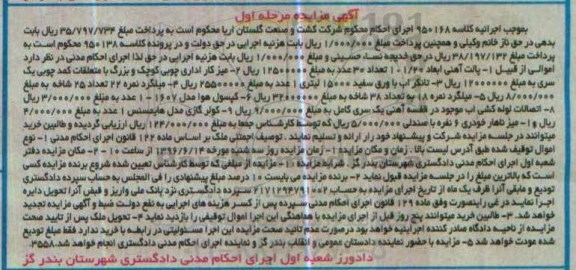 آگهی مزایده مرحله اول
بموجب اجرائیه کلاسه ۹۵۰۱۶۸ اجرای احکام محکوم شرکت کشت و صنعت گلستان اریا محکوم است به پرداخت مبلغ ۳۵/۷۹۷/۷۳۴ ریال بابت
بدهی در حق ناز خانم وکیلی و همچنین پرداخت مبلغ ۱/۰۰۰/۰۰۰ ریال بابت هزینه اجرایی در حق دولت و در پرونده کلاسه ۹۵۰۱۳۸ محکوم است به
پرداخت مبلغ ۳۸/۱۹۷/۱۳۲ ریال در حق خدیجه نساء حسینی و مبلغ ۱/۰۰۰/۰۰۰ ریال بابت هزینه اجرایی در حق لذا اجرای احکام مدنی در نظر دارد
اموالی از قبیل ۱- پالت آهنی ابعاد ۱/۲۰ ۱ تعداد ۳۰ عدد به مبلغ ۱۲۵۰۰۰۰۰ ریال ۲- میز کار اداری چوبی کوچک و بزرگ با متعلقات کمد چوبی یک
سری به مبلغ ۱۲۰۰۰۰۰۰ ریال ۳- تانکر آب با ورق سفید ۱۵۰۰۰ لیتری ۱ عدد به مبلغ ۲۵۵۰۰۰۰۰ ریال ۴- میلگرد نمره ۲۲ تعداد ۲۵ شاخه به مبلغ
۸/۰۰۰/۰۰۰ ریال ۵- میلگرد نمره ۱۸ به تعداد ۳۸ شاخه به مبلغ ۳۴۲۰۰۰۰ ریال ۶- کپسول هوا مدل ۱۶۰۷- ۱ عدد به مبلغ ۳/۰۰۰/۰۰۰ ریال
۸- اتصالات لوله کشی آب موجود در قفسه آهنی یک سری کامل به مبلغ ۹/۰۰۰/۰۰۰ ریال ۹- کولر گازی مدل هایسنس ۱ عدد به مبلغ ۴/۰۰۰/۰۰۰
ریال و ۱- میز ناهار خوری ۶ نفره با صندلی ۵/۰۰۰/۰۰۰ ریال که توسط کارشناس جمعا به مبلغ ریال ارزیابی گردیده و طالبین خرید
میتوانند در جلسه مزایده شرکت و پیشنهاد خود را ارائه و تسلیم نمایند. توصیف اجمالی ملک بر اساس ماده ۱۲۲ قانون اجرای احکام مدنی ۱- نوع
اموال توقیف شده طبق آدرس لیست بالا. زمان و مکان مزایده ۱- زمان مزایده روز سه شنبه مورخه ۱۳۹۶/۶/۱۴ از ساعت ۱۰ ۲- مکان مزایده دفتر
شعبه اول اجرای احکام مدنی دادگستری شهرستان بندر گز. شرایط مزایده ۱- مزایده از مبلغی که توسط کارشناس تعیین شده شروع برنده مزایده کسی
است که بالاترین مبلغ را در جلسه مزایده قبول نماید ۲- برنده مزایده می بایست ۱۰ درصد مبلغ پیشنهادی را فی المجلس به حساب سپرده دادگستری
تودیع و مابقی آنرا ظرف یک ماه از تاریخ اجرای مزایده به حساب سپرده دادگستری نزد بانک ملی واریز و قبض آنرا تحویل دایره
اجرا نمایند در غیر اینصورت وفق ماده ۱۲۹ قانون اجرای احکام مدنی سپرده پس از کسر هزینه های اجرایی به نفع دولت ضبط و آگهی مزایده تجدید
خواهد شد. ۳- طالبین خرید میتوانند پنج روز قبل از اجرای مزایده با هماهنگی این اجرا اموال توقیفی را بازدید نماید ۴- تحویل ملک پس از تایید صحت
مزایده از ناحیه دادگاه صادر کننده اجرائیه خواهد بود در صورت عدم تائید صحت مزایده این اجرا مسئولیتی در رابطه با خرید ندارد فقط مبلغ تودیع
شده عودت خواهد شد ۵- مزایده با حضور نماینده دادستان عمومی و انقلاب بندر گز و نماینده اجرای احکام مدنی دادگستری انجام خواهد شد. ۳۵۵۸
دادورز شعبه اول اجرای احکام مدنی دادگستری شهرستان بندر گز